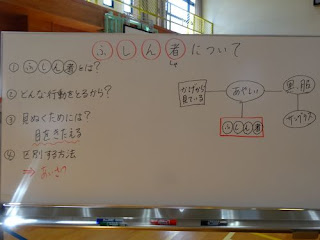 ふしん者について
① ふしん者とは?
② どんな行動をとるから?
③ 見ぬくためには?
目をきたえる
④ 区別する方法
⇒ あいさつ
かげから
見ている
あやしい
黒い服
サングラス
ふしん者